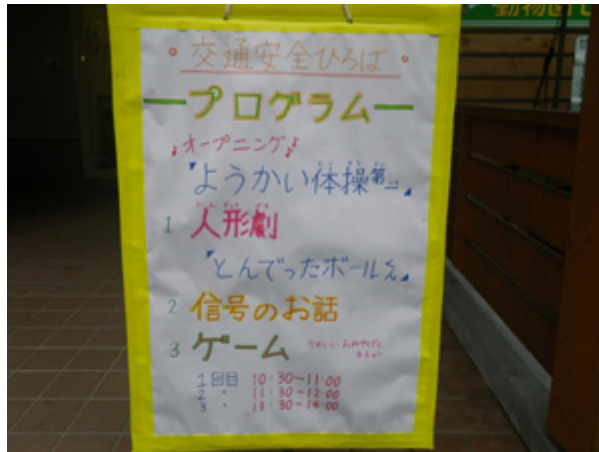 動物園
交通安全ひろば
プログラム
♪オープニング♪
『ようかい体操第二』
1 人形劇
『とんでったボールくん』
2 信号のお話
3 ゲーム
1回目 10:30~11:00
2 〃 11:30~12:00
3 〃 13:30~14:00